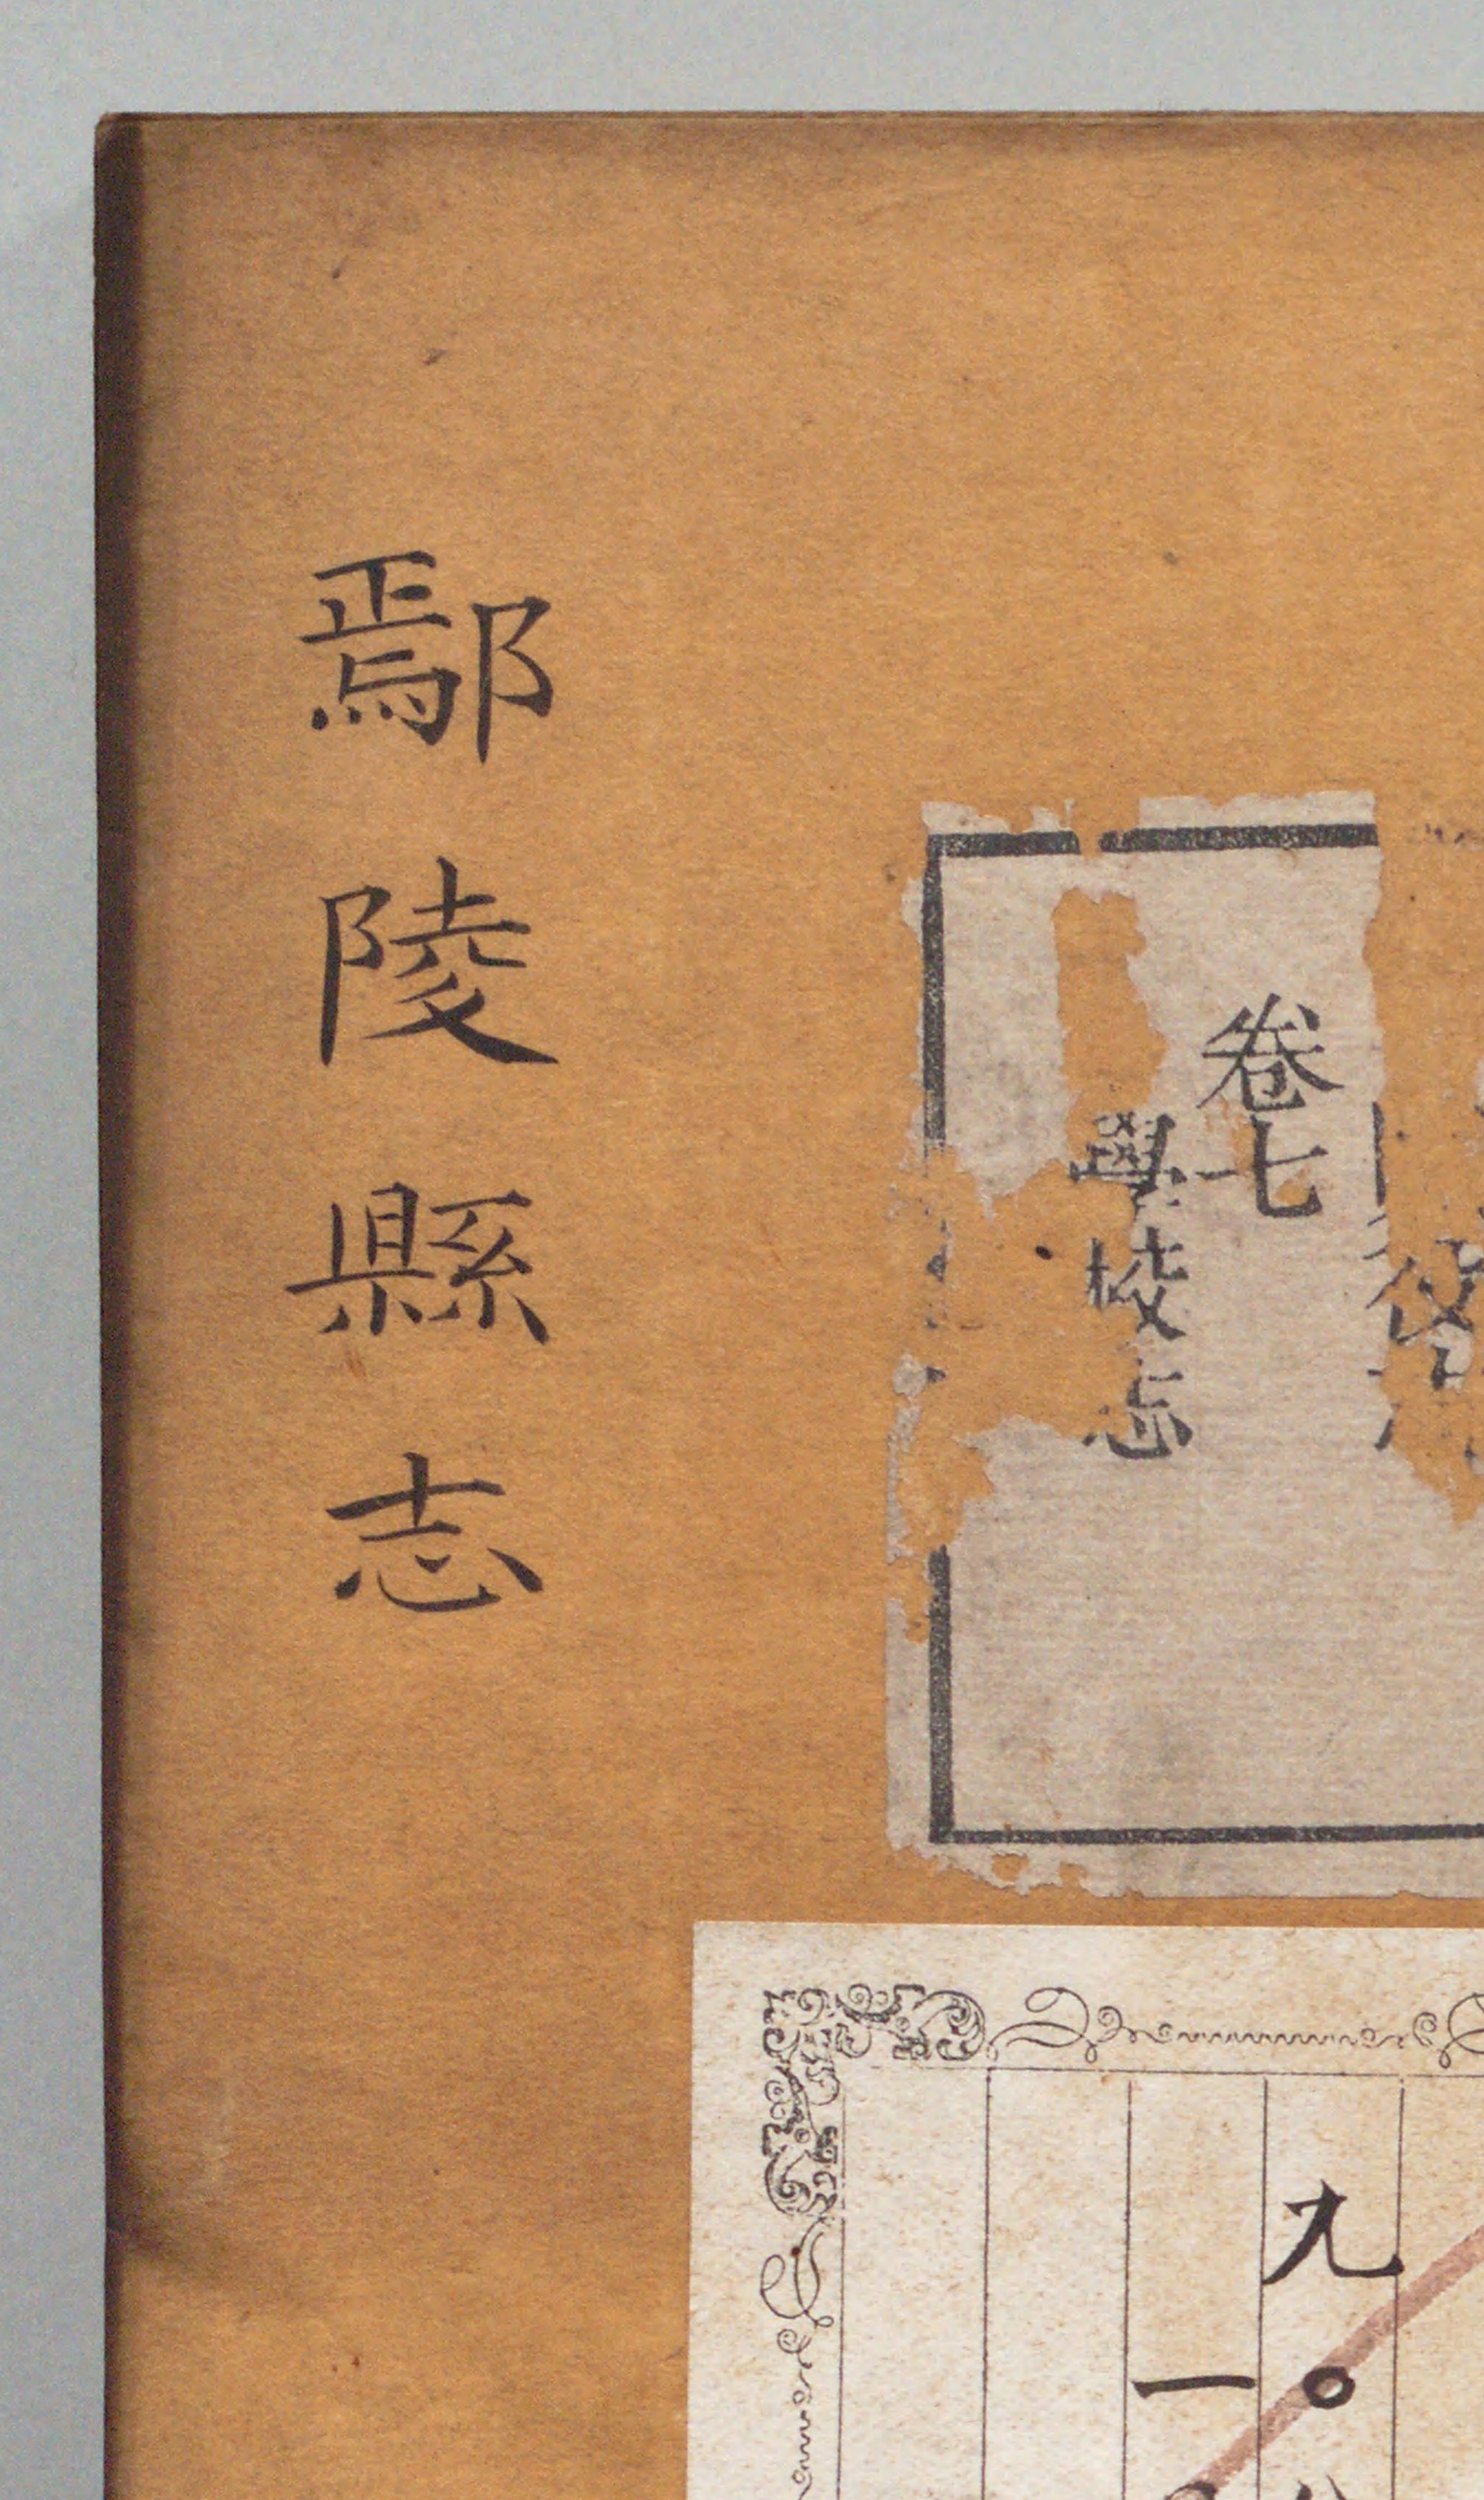 鄢陵縣志
卷七
學校志
九〇
一